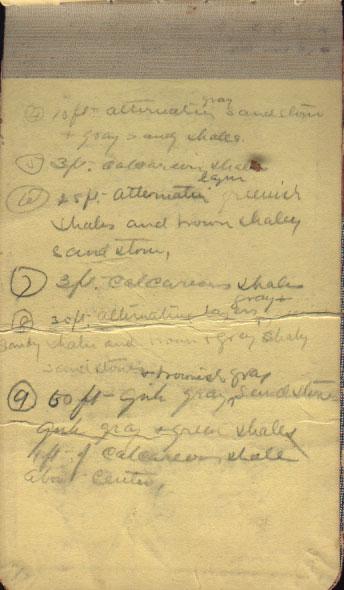 ④ 10 ft. alternating gray sandstone
+ gray sandy shales.
⑤ 3 ft. Calcareous shale
⑥ 25 ft. alternating greenish
shales and brown shaley
sandstone,
⑦ 3 ft. Calcareous shales
⑧ 30 ft. alternating layers gray +
sandy shales and brown + gray shaly
sandstones
⑨ 50 ft. gray + brownish gray sandstone
gray + green shales
1 ft. of calcareous shale
about center,